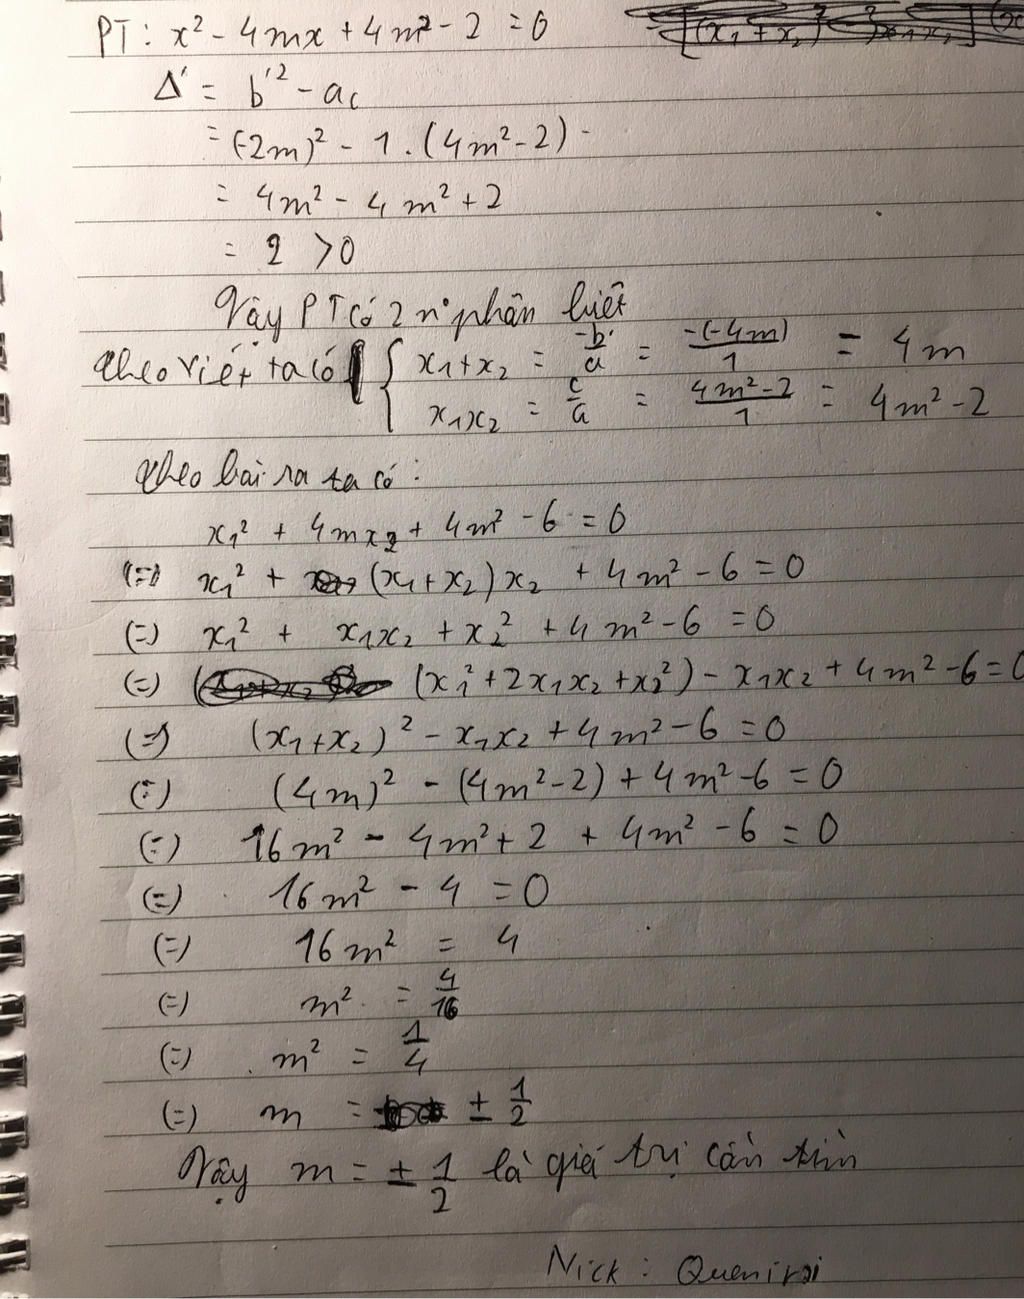 PT: x² - 4mx + 4m² - 2 = 0
Δ' = b'² - ac
= (-2m)² - 1.(4m² - 2)
= 4m² - 4m² + 2
= 2 > 0
Vậy PT có 2 n° phân biệt
Theo viét ta có { x₁ + x₂ = -b/a = -(-4m)/1 = 4m
x₁x₂ = c/a = (4m² - 2)/1 = 4m² - 2
Theo bài ra ta có :
x₁² + 4mx₂ + 4m² - 6 = 0
(=) x₁² + (x₁ + x₂)x₂ + 4m² - 6 = 0
(=) x₁² + x₁x₂ + x₂² + 4m² - 6 = 0
(=) (x₁² + 2x₁x₂ + x₂²) - x₁x₂ + 4m² - 6 = 0
(=) (x₁ + x₂)² - x₁x₂ + 4m² - 6 = 0
(=) (4m)² - (4m² - 2) + 4m² - 6 = 0
(=) 16m² - 4m² + 2 + 4m² - 6 = 0
(=) 16m² - 4 = 0
(=) 16m² = 4
(=) m² = 4/16
(=) m² = 1/4
(=) m = ± 1/2
Vậy m = ± 1/2 là giá trị cần tìm
Nick :